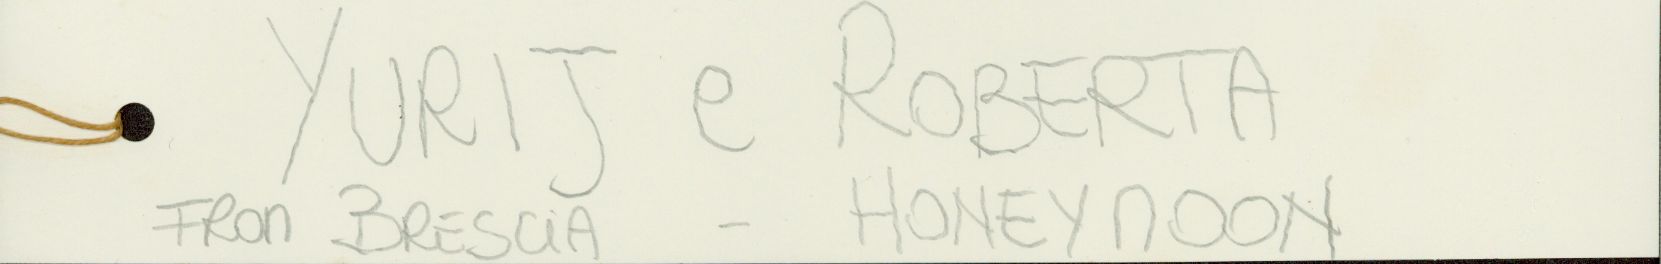 YURIJ e ROBERTA
FROM BRESCIA - HONEYMOON